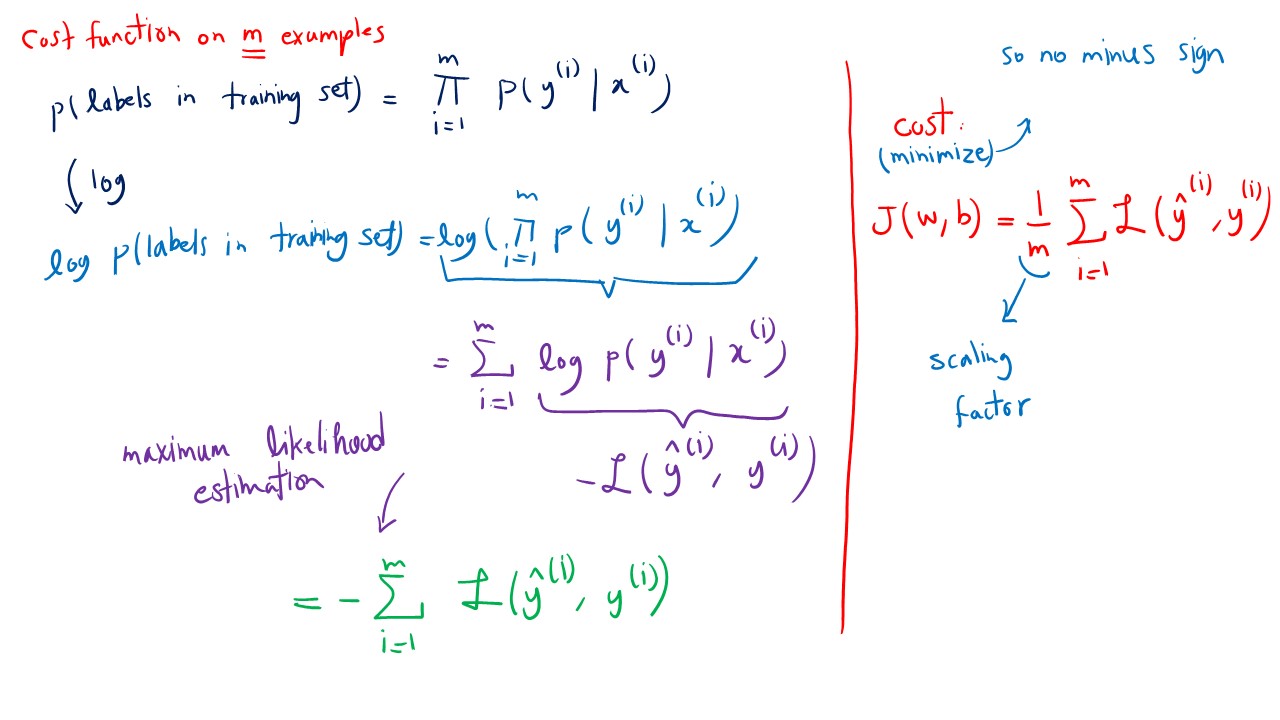 Cost function on m examples
p(labels in training set) = ∏_{i=1}^{m} P(y^{(i)} | x^{(i)})
log
log p(labels in training set) = log(∏_{i=1}^{m} p(y^{(i)} | x^{(i)})
= ∑_{i=1}^{m} log p(y^{(i)} | x^{(i)})
-ℒ(ŷ^{(i)}, y^{(i)})
maximum likelihood
estimation
= - ∑_{i=1}^{m} ℒ(ŷ^{(i)}, y^{(i)})
so no minus sign
cost:
(minimize)
J(w, b) = 1/m ∑_{i=1}^{m} ℒ(ŷ^{(i)}, y^{(i)})
scaling
factor